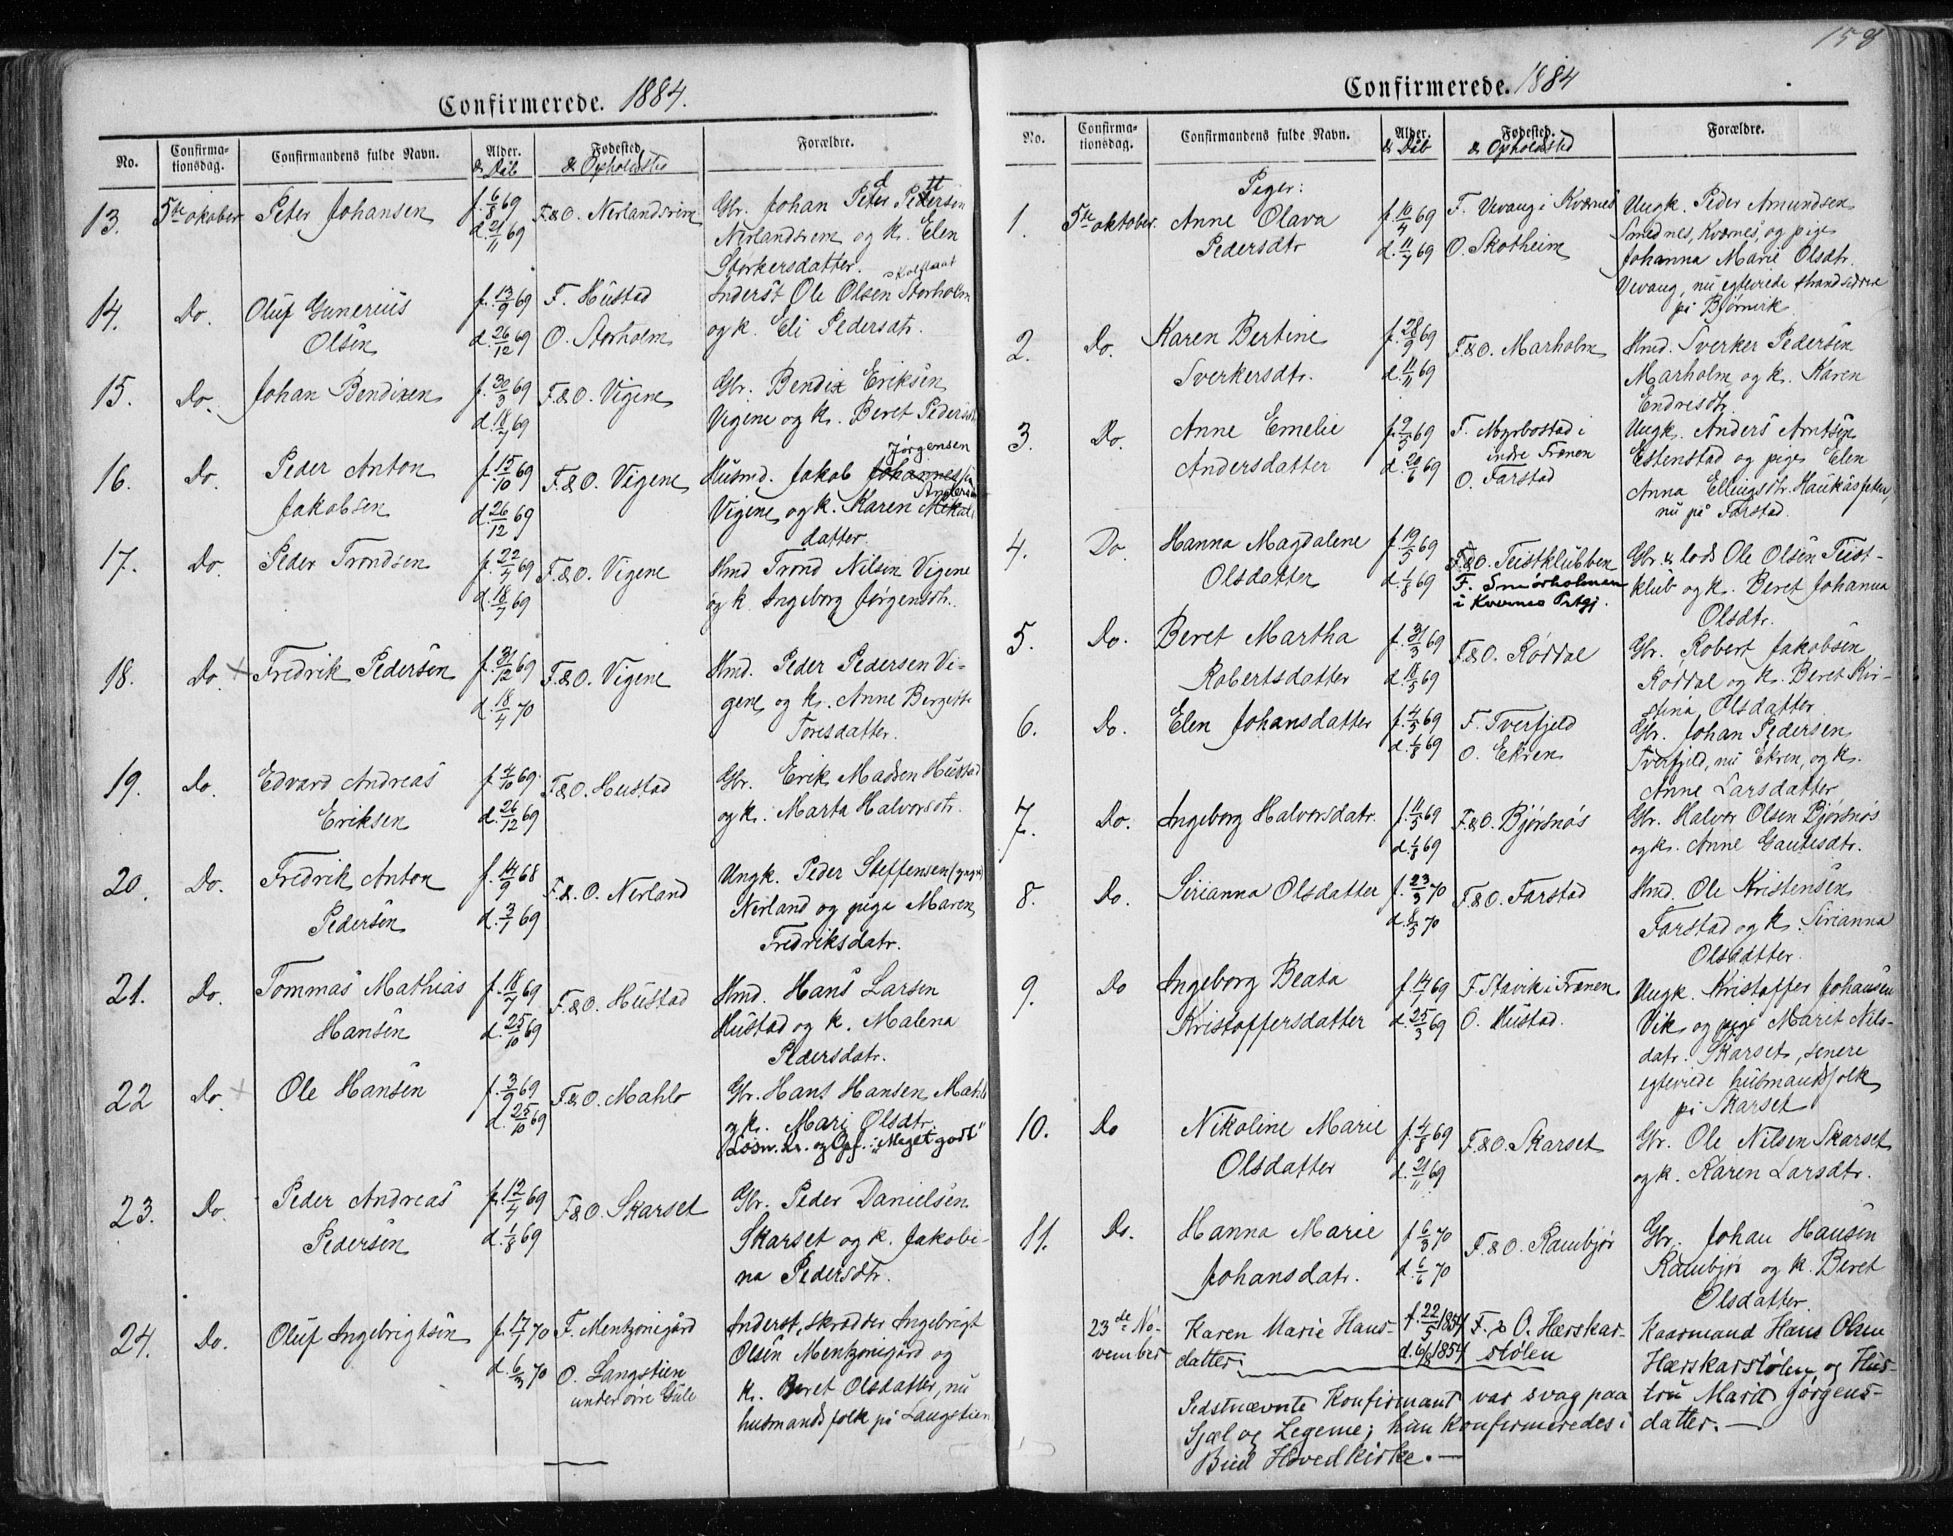 Confirmerede. 1884.
No.
Confirma-
tionsdag.
Confirmandens fulde Navn.
Alder.
& Dåb
Fødested
& Opholdssted
Forældre.
13. 5te oktober Peter Johansen f. 6/8 69 F&O. Nerlandsrem Gbr. Johan Peter Petersen
d. 21/11 69 Nerlandsrem og k. Elen
Størkersdatter.
14. Do. Oluf Gunerius f. 13/9 69 F. Hustad Inderst Ole Olsen Storholm
Olsen d. 26/12 69 O. Storholm og k. Eli Pedersdtr.
15. Do. Johan Bendixen f. 30/3 69 F&O. Vigene Gbr. Bendix Eriksen
d. 18/7 69 Vigene og k. Beret Pedersdtr
16. Do. Peder Anton f. 15/10 69 F.&O. Vigene Husmd. Jakob Johannessen
Jørgensen
Jakobsen d. 26/12 69 Vigene og k. Karen
datter.
17. Do. Peder Trondsen f. 22/4 69 F&O. Vigene Hmd. Trond Nilsen Vigene
d. 18/7 69 og k. Ingeborg Jørgensdtr.
18. Do. Fredrik Pedersen f. 31/12 69 F.&O. Vigene Hmd. Peder Pedersen Vi-
d. 18/4 70 gene og k. Anne Bergitte
Toresdatter.
19. Do. Edvard Andreas f. 4/10 69 F&O. Hustad Gbr. Erik Madsen Hustad
Eriksen d. 26/12 69 og k. Marta Halvorsdtr.
20. Do. Fredrik Anton f. 14/9 68 F.&.O. Nerland Ungk. Peder Steffensen
Pedersen d. 3/1 69 Nerland og pige Maren
Fredriksdatr.
21. Do. Tommas Mathias f. 18/7 69 F.&O. Hustad Hmd. Hans Larsen
Hansen d. 25/10 69 Hustad og k. Malena
Pedersdatr.
22 Do. Ole Hansen f. 3/9 69 F&O. Mahlo Gbr. Hans Hansen Mahlo
d. 25/10 69 og k. Mari Olsdtr.
og Opf.: "Meget godt"
23. Do. Peder Andreas f. 12/4 69 F&O. Skarset Gbr. Peder Danielsen
Pedersen d. 1/8 69 Skarset og k. Jakobi-
na Pedersdtr.
24. Do. Oluf Ingebrigtsen f. 17/1 70 F. Mentzonigård Inderst, skrædder Ingebrigt
d. 6/3 70 O. Langstien Olsen Mentzonigård og
under øvre Gule k. Beret Olsdatter, nu
husmandsfolk på Langstien
158
Confirmerede. 1884
No.
Confirma-
tionsdag.
Confirmandens fulde Navn.
Alder.
& Dåb
Fødested.
& Opholdssted
Forældre.
Piger:
1. 5te oktober. Anne Olava f. 10/4 69 F. Vevang i Kværnes Ungk. Peder Amundsen
Pedersdtr d. 11/7 69 O. Skotheim Smednes, Kværnes, og pige
Johanna Marie Olsdtr.
Vevang, nu egteviede strandsiddere
på Bjørnvik
2. Do. Karen Bertine f. 28/9 69 F&O. Marholm Hmd. Sverker Pedersen
Sverkersdtr. d. 11/11 69 Marholm og k. Karen
Endresdtr.
3. Do. Anne Emelie f. 2/3 69 F. Myrbostad i Ungk. Anders Arntsen
indre Frænen
Andersdatter d. 20/6 69 O. Farstad Estenstad og pige Elen
Anna Ellingsdtr. Haukåsfeten,
nu på Farstad.
4. Do. Hanna Magdalene f. 19/5 69 F.&O. Teistklubben Gbr. & lods Ole Olsen Teist-
Olsdatter d. 1/8 69 F. Smørholmen klub og k. Beret Johanna
i Kvernes Prtgj. Olsdtr.
5. Do. Beret Martha f. 31/3 69 F&O. Røddal Gbr. Robert Jakobsen
Robertsdatter d. 18/5 69 Røddal og k. Beret Kir-
stina Olsdatter
6. Do. Elen Johansdatter f. 4/5 69 F. Tverfjeld Gbr. Johan Pedersen
d. 1/8 69 O. Ekren Tverfjeld, nu Ekren, og k.
Anne Larsdatter
7. Do. Ingeborg Halvorsdatr. f. 11/5 69 F.&O. Bjørsnøs Gbr. Halvor Olsen Bjørsnøs
d. 1/8 69 og k. Anne Gautesdtr.
8. Do. Sirianna Olsdatter f. 23/3 70 F.&O. Farstad Hmd. Ole Kristensen
d. 8/5 70 Farstad og k. Sirianna
Olsdatter.
9. Do Ingeborg Beata f. 14/1 69 F. Stavik i Frænen Ungk. Kristoffer Johansen
Kristoffersdatter d. 25/3 69 O. Hustad. Vik og pige Maret Nils-
datr. Skarset, senere
egteviede husmandsfolk
på Skarset
10. Do Nikoline Marie f. 4/8 69 F.&O. Skarset Gbr. Ole Nilsen Skarset
Olsdatter d. 21/11 69 og k. Karen Larsdtr.
11. Do. Hanna Marie f. 6/3 70 F.&O. Rambjør Gbr. Johan Hansen
Johansdatr. d. 6/6 70 Rambjør og k. Beret
Olsdatter.
23de No- Karen Marie Hans- f. 22/5 1854 F. & O. Hærskar- Kaarmand Hans Olsen
vember datter. d. 6/8 1854 stølen Hærskarstølen og Hus-
Sidstnævnte Konfirmant var svag paa tru Marit Jørgens-
Sjæl og Legeme; hun konfirmeredes i datter.
Bud Hovedkirke.